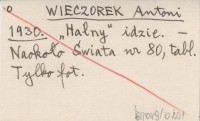 WIECZOREK Antoni
1930. „Halny" idzie. –
Naokoło Świata nr 80, tabl.
Tylko fot.